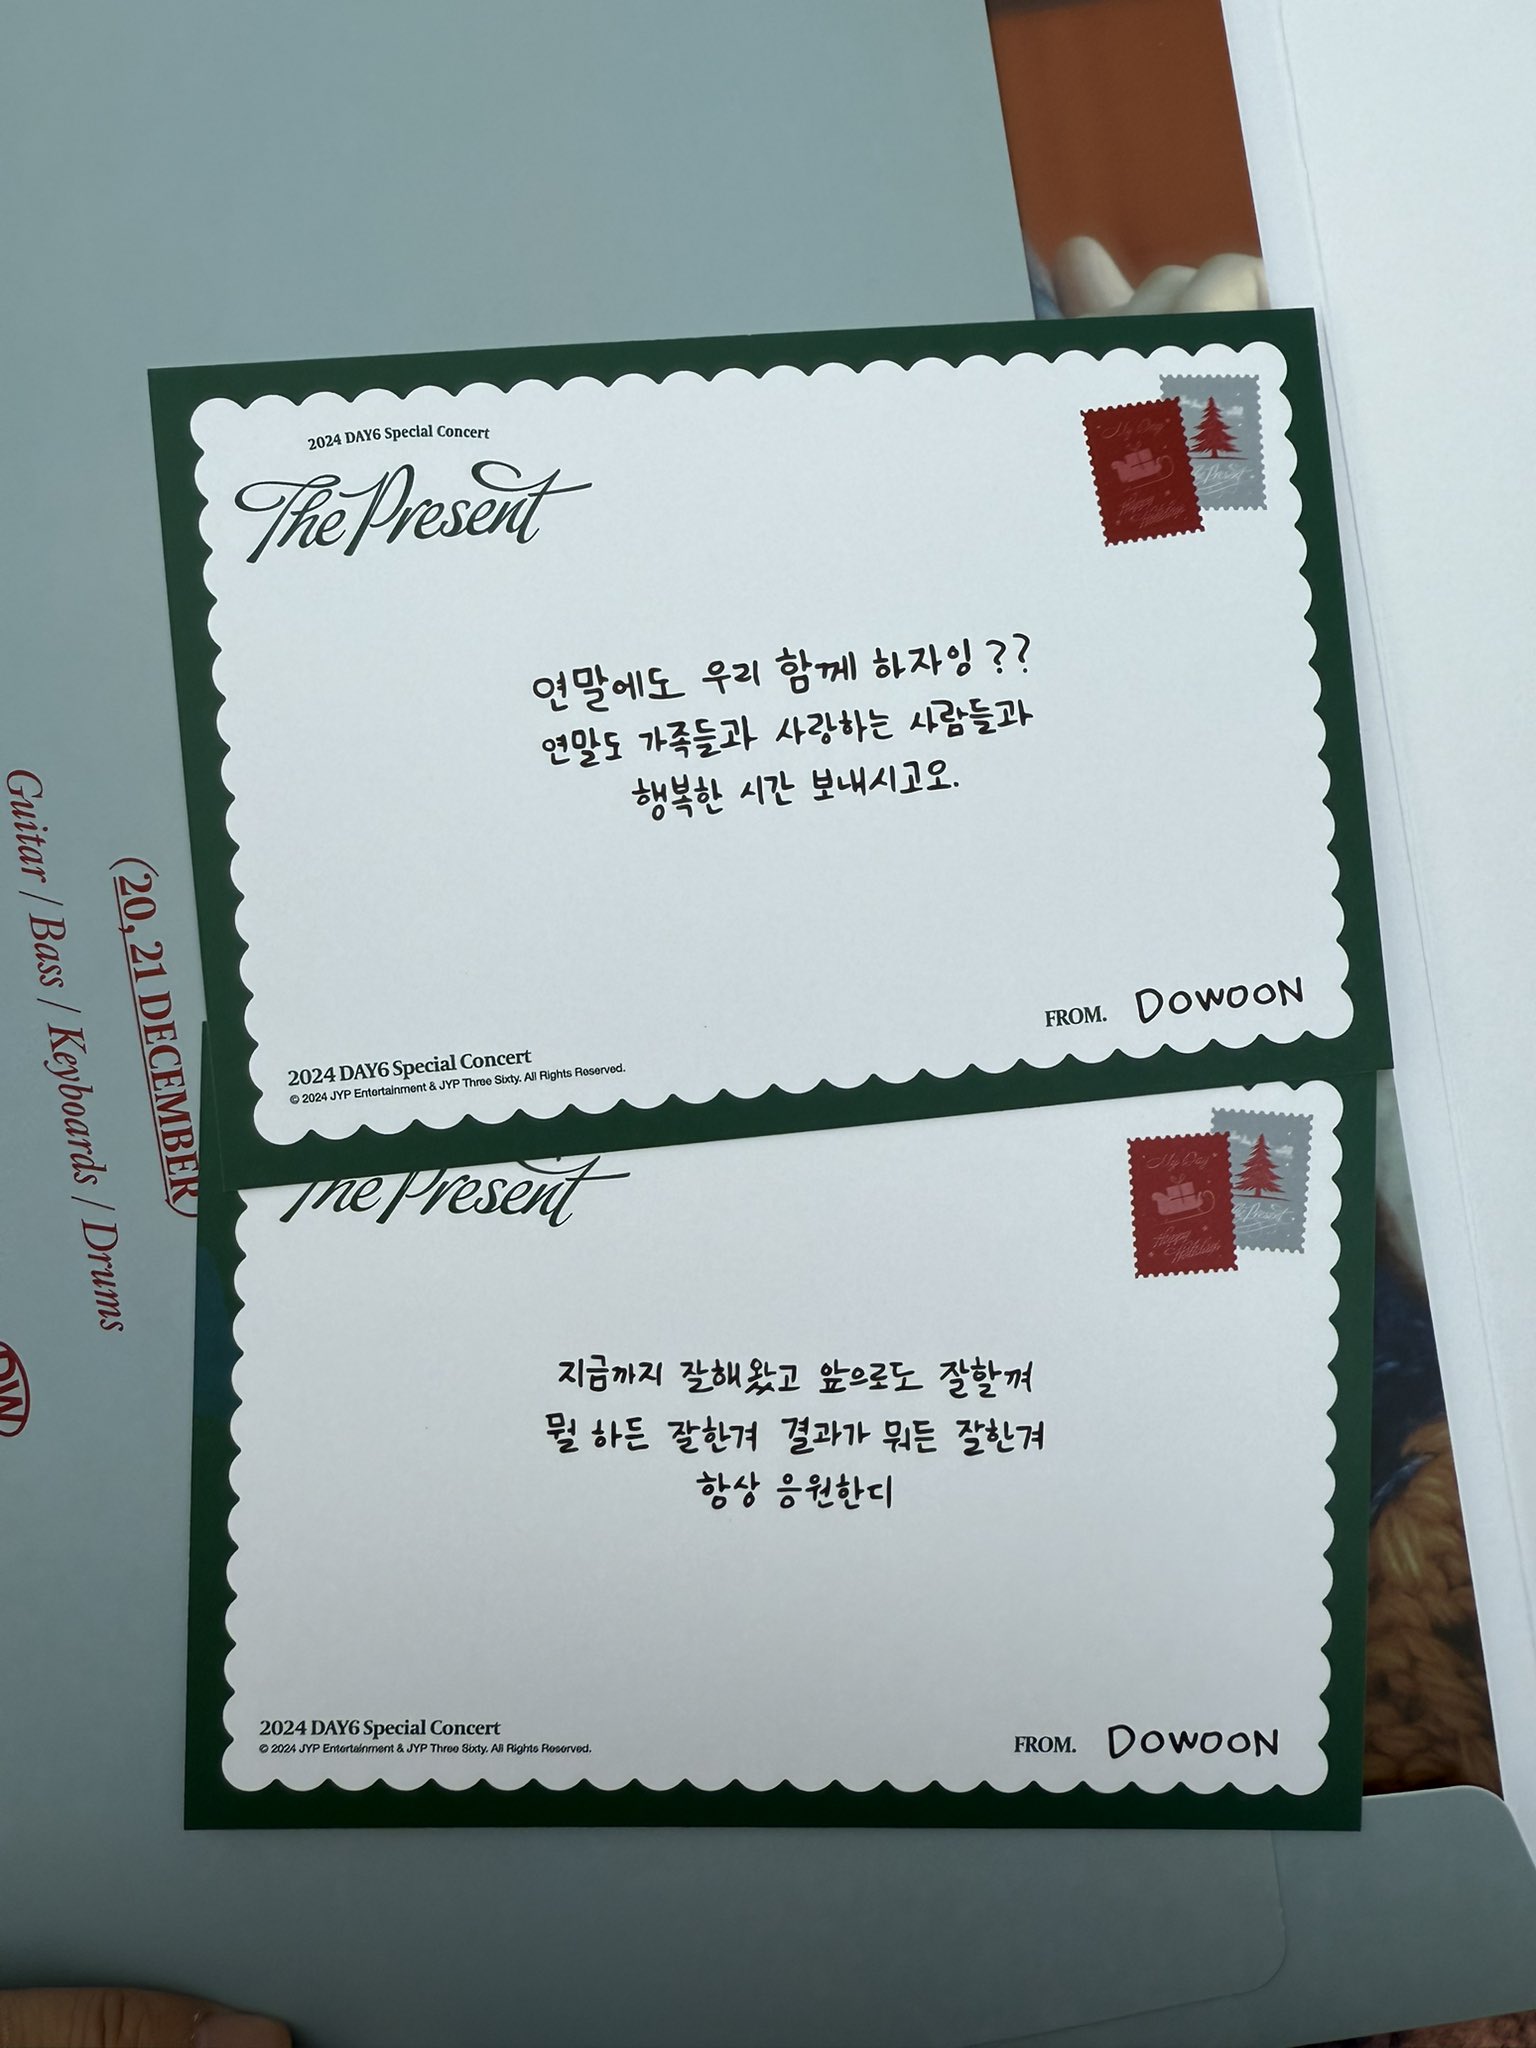 2024 DAY6 Special Concert
The Present
My Day
Happy
Holidays
연말에도 우리 함께 하자잉??
연말도 가족들과 사랑하는 사람들과
행복한 시간 보내시고오.
FROM. DOWOON
2024 DAY6 Special Concert
© 2024 JYP Entertainment & JYP Three Sixty. All Rights Reserved.
The Present
My Day
Happy
Holidays
Present
지금까지 잘해왔고 앞으로도 잘할껴
뭘 하든 잘한겨 결과가 뭐든 잘한겨
항상 응원한디
2024 DAY6 Special Concert
© 2024 JYP Entertainment & JYP Three Sixty. All Rights Reserved.
FROM. DOWOON
(20, 21 DECEMBER)
Guitar / Bass / Keyboards / Drums